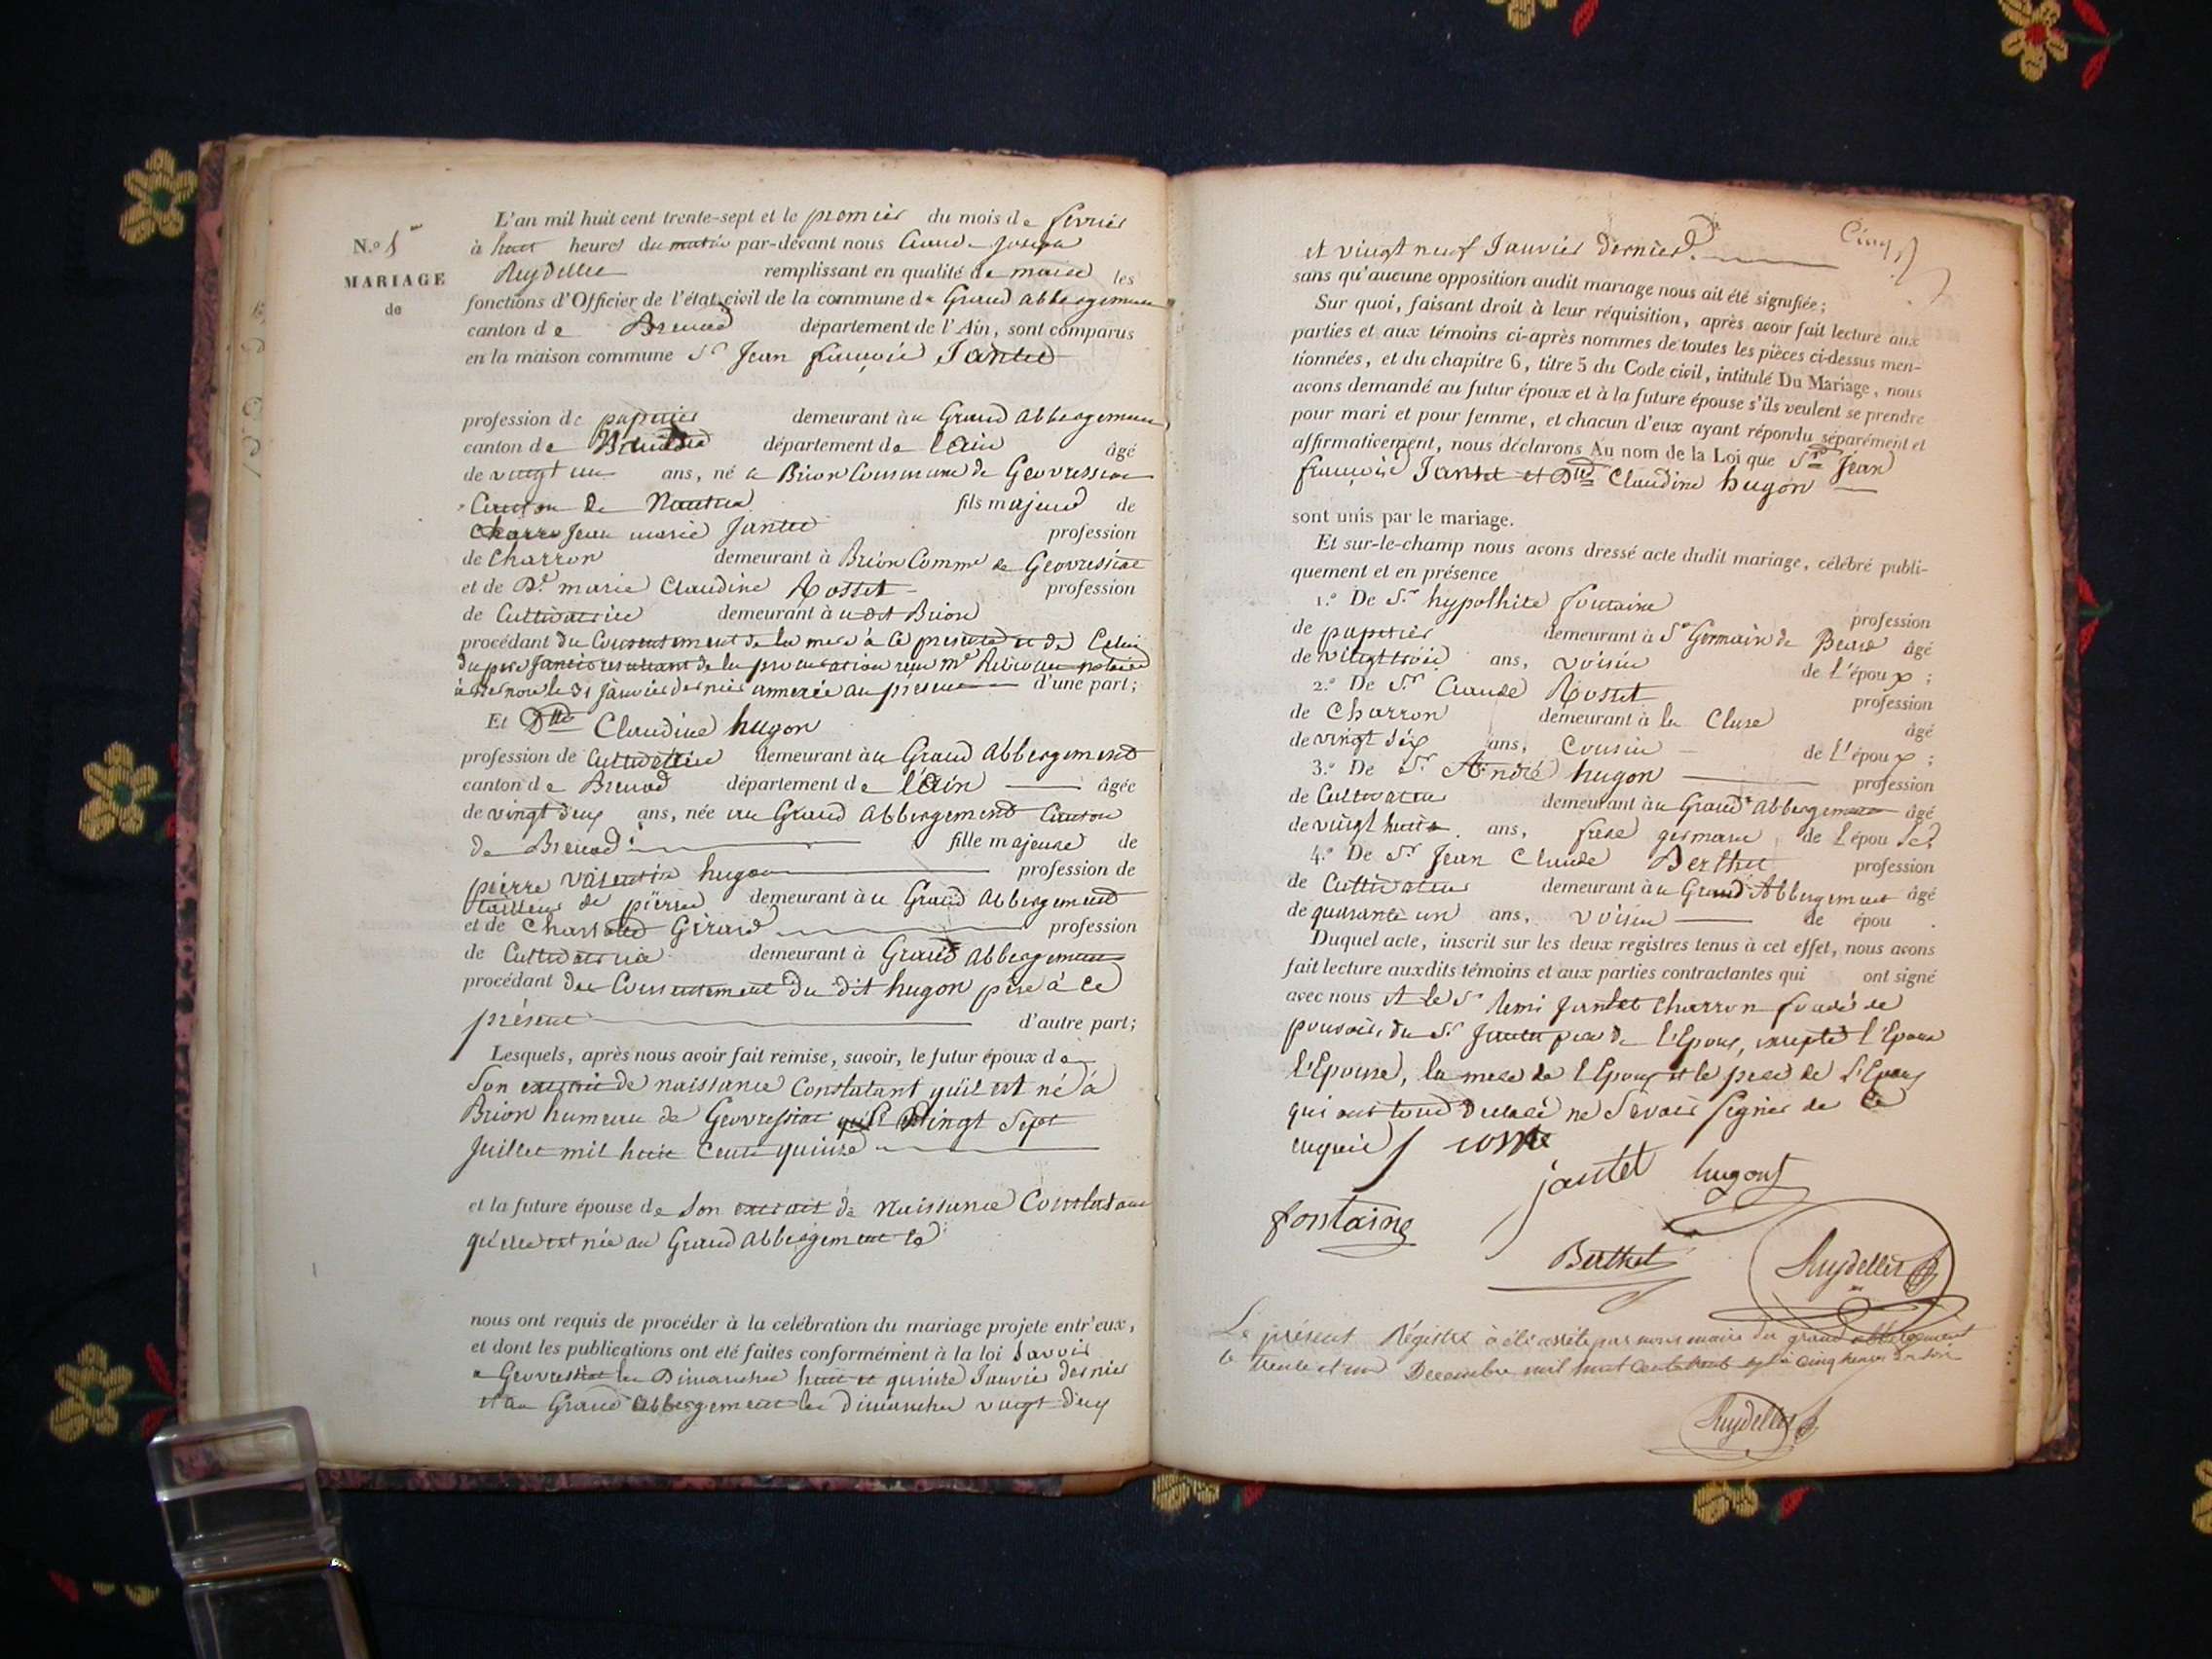 L'an mil huit cent trente-sept et le premier du mois de fevrier
N.o 5
à huit heures du matin par-devant nous Claude Joseph
MARIAGE
Ruydellet remplissant en qualité de maire les
de
fonctions d'Officier de l'état civil de la commune de Grand abbergement
canton de Brenod département de l'Ain, sont comparus
en la maison commune Sr Jean françois Jantet
profession de papetier demeurant à u Grand abbergement
canton de Brenod département de l'ain âgé
de vingt un ans, né a Brion Commune de Geovressiat
Canton de Nantua fils majeur de
Jean marie Jantet profession
de Charron demeurant à Brion Comme de Geovressiat
et de De marie Claudine Rosset profession
de Cultivatrice demeurant à udit Brion
procédant du Consentement de la mere à Ce présente et de Celui
du pere Jantet resultant de la procuration reçu me notaire
à le 31 Janvier dernier annexée au présent d'une part;
Et Dlle Claudine hugon
profession de Cultivatrice demeurant à u Grand abbergement
canton de Brenod département de l'Ain âgée
de vingt deux ans, née au Grand abbergement Canton
de Brenod fille majeure de
pierre valentin hugon profession de
tailleur de pierre demeurant à u Grand abbergement
et de Girard profession
de Cultivatrice demeurant à Grand abbergement
procédant du Consentement du dit hugon père à Ce
présent d'autre part;
Lesquels, après nous avoir fait remise, savoir, le futur époux de
Son extrait de naissance Constatant qu'il est né à
Brion hameau de Geovressiat le vingt Sept
Juillet mil huit Cent quinze
et la future épouse de Son extrait de naissance Constatant
qu'elle est née au Grand abbergement le
nous ont requis de procéder à la celébration du mariage projeté entr'eux,
et dont les publications ont été faites conformément à la loi Savoir
a Geovressiat les Dimanches huit et quinze Janvier dernier
et au Grand abbergement les dimanches vingt deux
Cinq
et vingt neuf Janvier dernier
sans qu'aucune opposition audit mariage nous ait été signifiée;
Sur quoi, faisant droit à leur réquisition, après avoir fait lecture aux
parties et aux témoins ci-après nommés de toutes les pièces ci-dessus men-
tionnées, et du chapitre 6, titre 5 du Code civil, intitulé Du Mariage, nous
avons demandé au futur époux et à la future épouse s'ils veulent se prendre
pour mari et pour femme, et chacun d'eux ayant répondu séparément et
affirmativement, nous déclarons Au nom de la Loi que Sr Jean
françois Jantet et Dlle Claudine hugon
sont unis par le mariage.
Et sur-le-champ nous avons dressé acte dudit mariage, célébré publi-
quement et en présence
1.o De Sr hypolhite fontaine profession
de papetier demeurant à St Germain de Beard âgé
de vingt trois ans, voisin de l'époux;
2.o De Sr Claude Rosset profession
de Charron demeurant à la Cluse âgé
de vingt six ans, Cousin de l'époux;
3.o De Sr André hugon profession
de Cultivateur demeurant à u Grand abbergement âgé
de vingt huit ans, frere germain de l'épouse
4.o De Sr Jean Claude Berthet profession
de Cultivateur demeurant à u Grand Abbergement âgé
de quarante un ans, voisin de épou .
Duquel acte, inscrit sur les deux registres tenus à cet effet, nous avons
fait lecture auxdits témoins et aux parties contractantes qui ont signé
avec nous et le Sr Remi Jantet Charron fondé de
pouvoir du Sr Jantet pere de l'Epoux, excepté l'Epoux
l'Epouse, la mere de l'Epoux et le pere de l'Epouse
qui ont tous declaré ne Savoir Signer de Ce
enquis
jantet hugon
fontaine
Berthet Ruydellet
Le présent Régistre à été arrêté par nous maire du grand abbergement
le trente et un Decembre mil huit cent trente sept à cinq heures du soir
Ruydellet